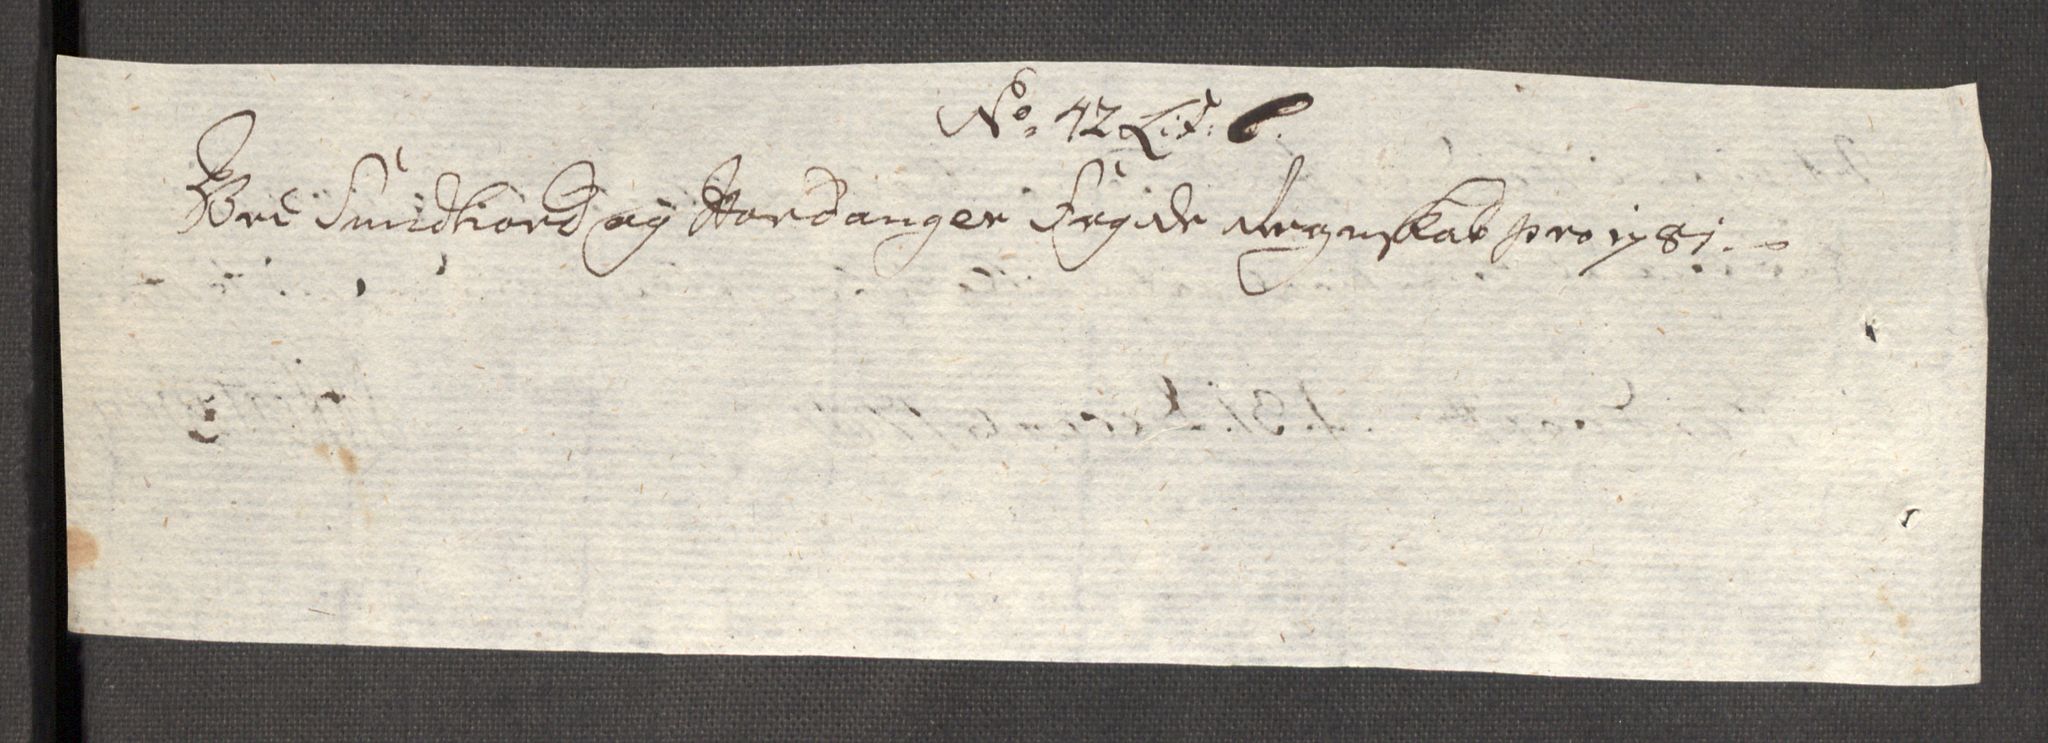 No. 42 Lit: C.
Ved Sundhord og Hardanger Fogde Regnskab pro 1781.